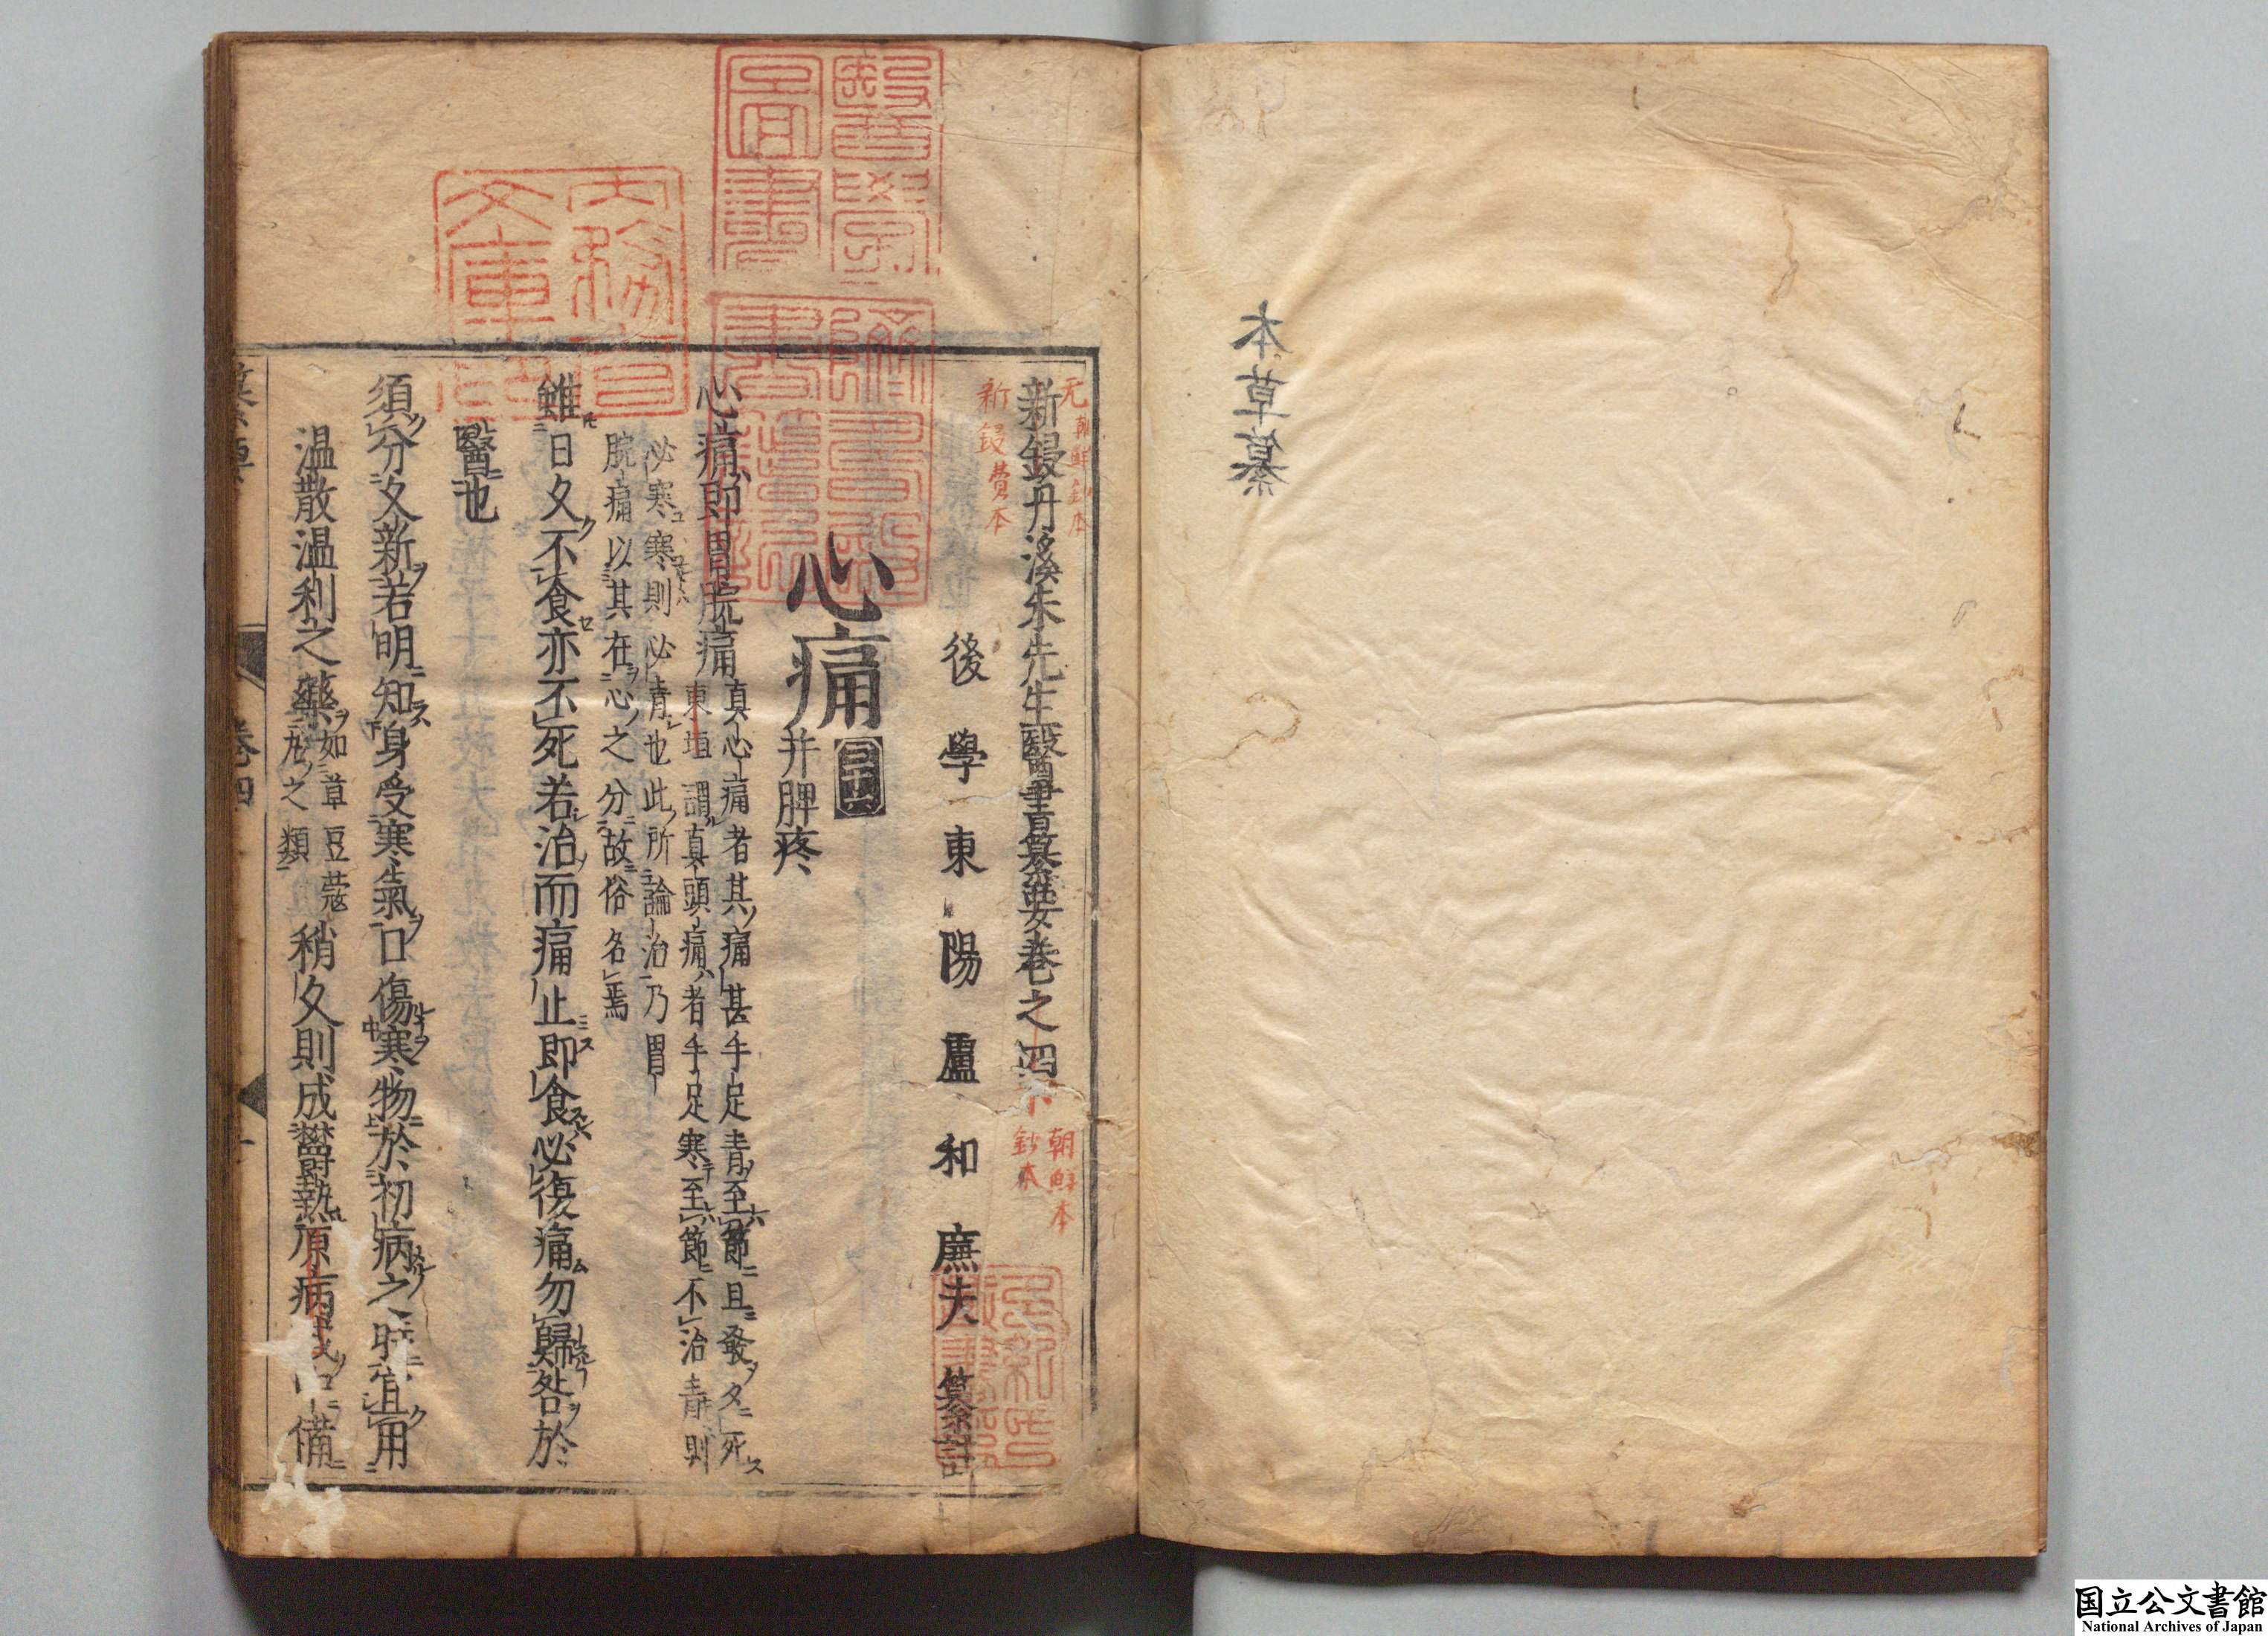 本草纂
新鋟丹溪朱先生醫書纂要卷之四
无朝鮮鈔本
新鋟費本
朝鮮本
鈔本
後學東陽盧和廉夫纂註
心痛 三十六
并脾疼
心痛即胃脘痛
真心痛者其痛甚手足青至節且發夕死
東垣謂真頭痛者手足寒至節不治青則
必寒寒則必青也此所論治乃胃
脘痛以其在心之分故俗名焉
雖日久不食亦不死若治而痛止即食必復痛勿歸咎於
醫也
須分久新若明知身受寒氣口傷寒物於初病之時宜用
温散温利之藥
如草豆蔻
丸之類
稍久則成鬱熱原病 備
纂要
卷四
一
醫學圖書
躋壽殿書籍記
国立公文書館
National Archives of Japan